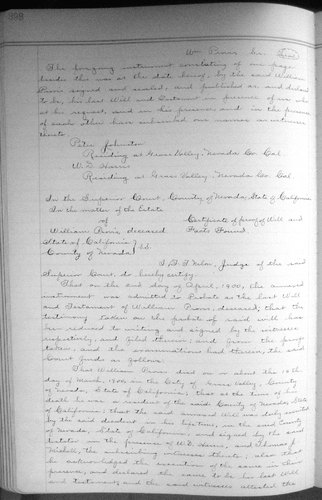 398
Wm Prevr Sr. (Seal)
The forgoing instrument consisting of one page
beside this was at the date hereof, by the said William
signed and sealed, and published as and declared
to be, his last Will and Testament in presence of us who
at his request, and in his presence and in the presence
of each other have subscribed our names as witnesses
hereto.
Peter Johnston
Residing at Grass Valley, Nevada Co. Cal
W. D. Harris
Residing at Grass Valley, Nevada Co. Cal.
In the Superior Court, County of Nevada, State of California
In the matter of the Estate
of
William deceased
Certificate of proof of Will and
Facts Found.
State of California
County of Nevada } S.S.
I, Judge of the said
Superior Court do hereby certify:
That on the 2nd day of April, 1900, the annexed
instrument was admitted to Probate as the last Will
and Testament of William deceased; that the
testimony taken on the probate of said will has
been reduced to writing and signed by the witnesses
respectively, and filed therein; and from the proofs
taken and the examinations had therein, the said
Court finds as follows:
That William died on or about the 10th
day of March, 1900, in the City of Grass Valley, County
of Nevada, State of California; that at the time of his
death he was a resident of the said County of Nevada, State
of California; that the said annexed Will was duly executed
by the said decedent in his lifetime, in the said County
of Nevada, State of California and signed by the said
testator in the presence of W. D. Harris, and Thomas J.
the subscribing witnesses thereto; also that
he acknowledged the execution of the same in their
presence, and declared the same to be his last Will
and testament, and the said witnesses attested the